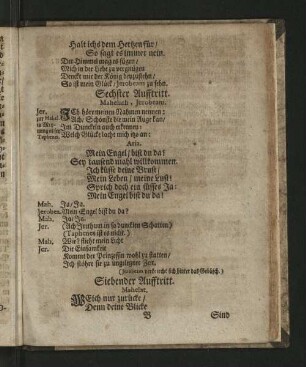 Halt ichs dem Hertzen für/
So sagt es immer nein.
Der Himmel mag es fügen/
Mich in der Liebe zu vergnügen
Denckt mir der König beyzustehn/
So ist mein Glück/ Jerobeam zu sehn.
Sechster Aufftritt.
Mahelath, Jerobeam.
Jer. Ich höre meinen Nahmen nennen:
Ach, Schönste die mein Auge kan/
Im Dunckeln auch erkennen:
Welch Glücke lacht mich itzo an:
Aria.
Mein Engel/ bist du da?
Sey tausend mahl willkommen.
Ich küsse deine Brust/
Mein Leben/ meine Lust:
Sprich doch ein süsses Ja:
Mein Engel bist du da?
Mah. Ja/ Ja.
Jerobea. Mein Engel bist du da?
Mah. Ja/ Ja.
Jer. (Ach Irrthum in so dunckten Schatten)
(Taphenes ist es nicht.)
Mah. Wie? flieht mein Licht
Jer. Die Einsamkeit
Kommt der Prinzeßin wohl zu statten/
Ich stöhre sie zu ungelegner Zeit.
Siebender Aufftritt.
Mahelat.
Weich nur zurücke/
Denn deine Blicke
B Sind